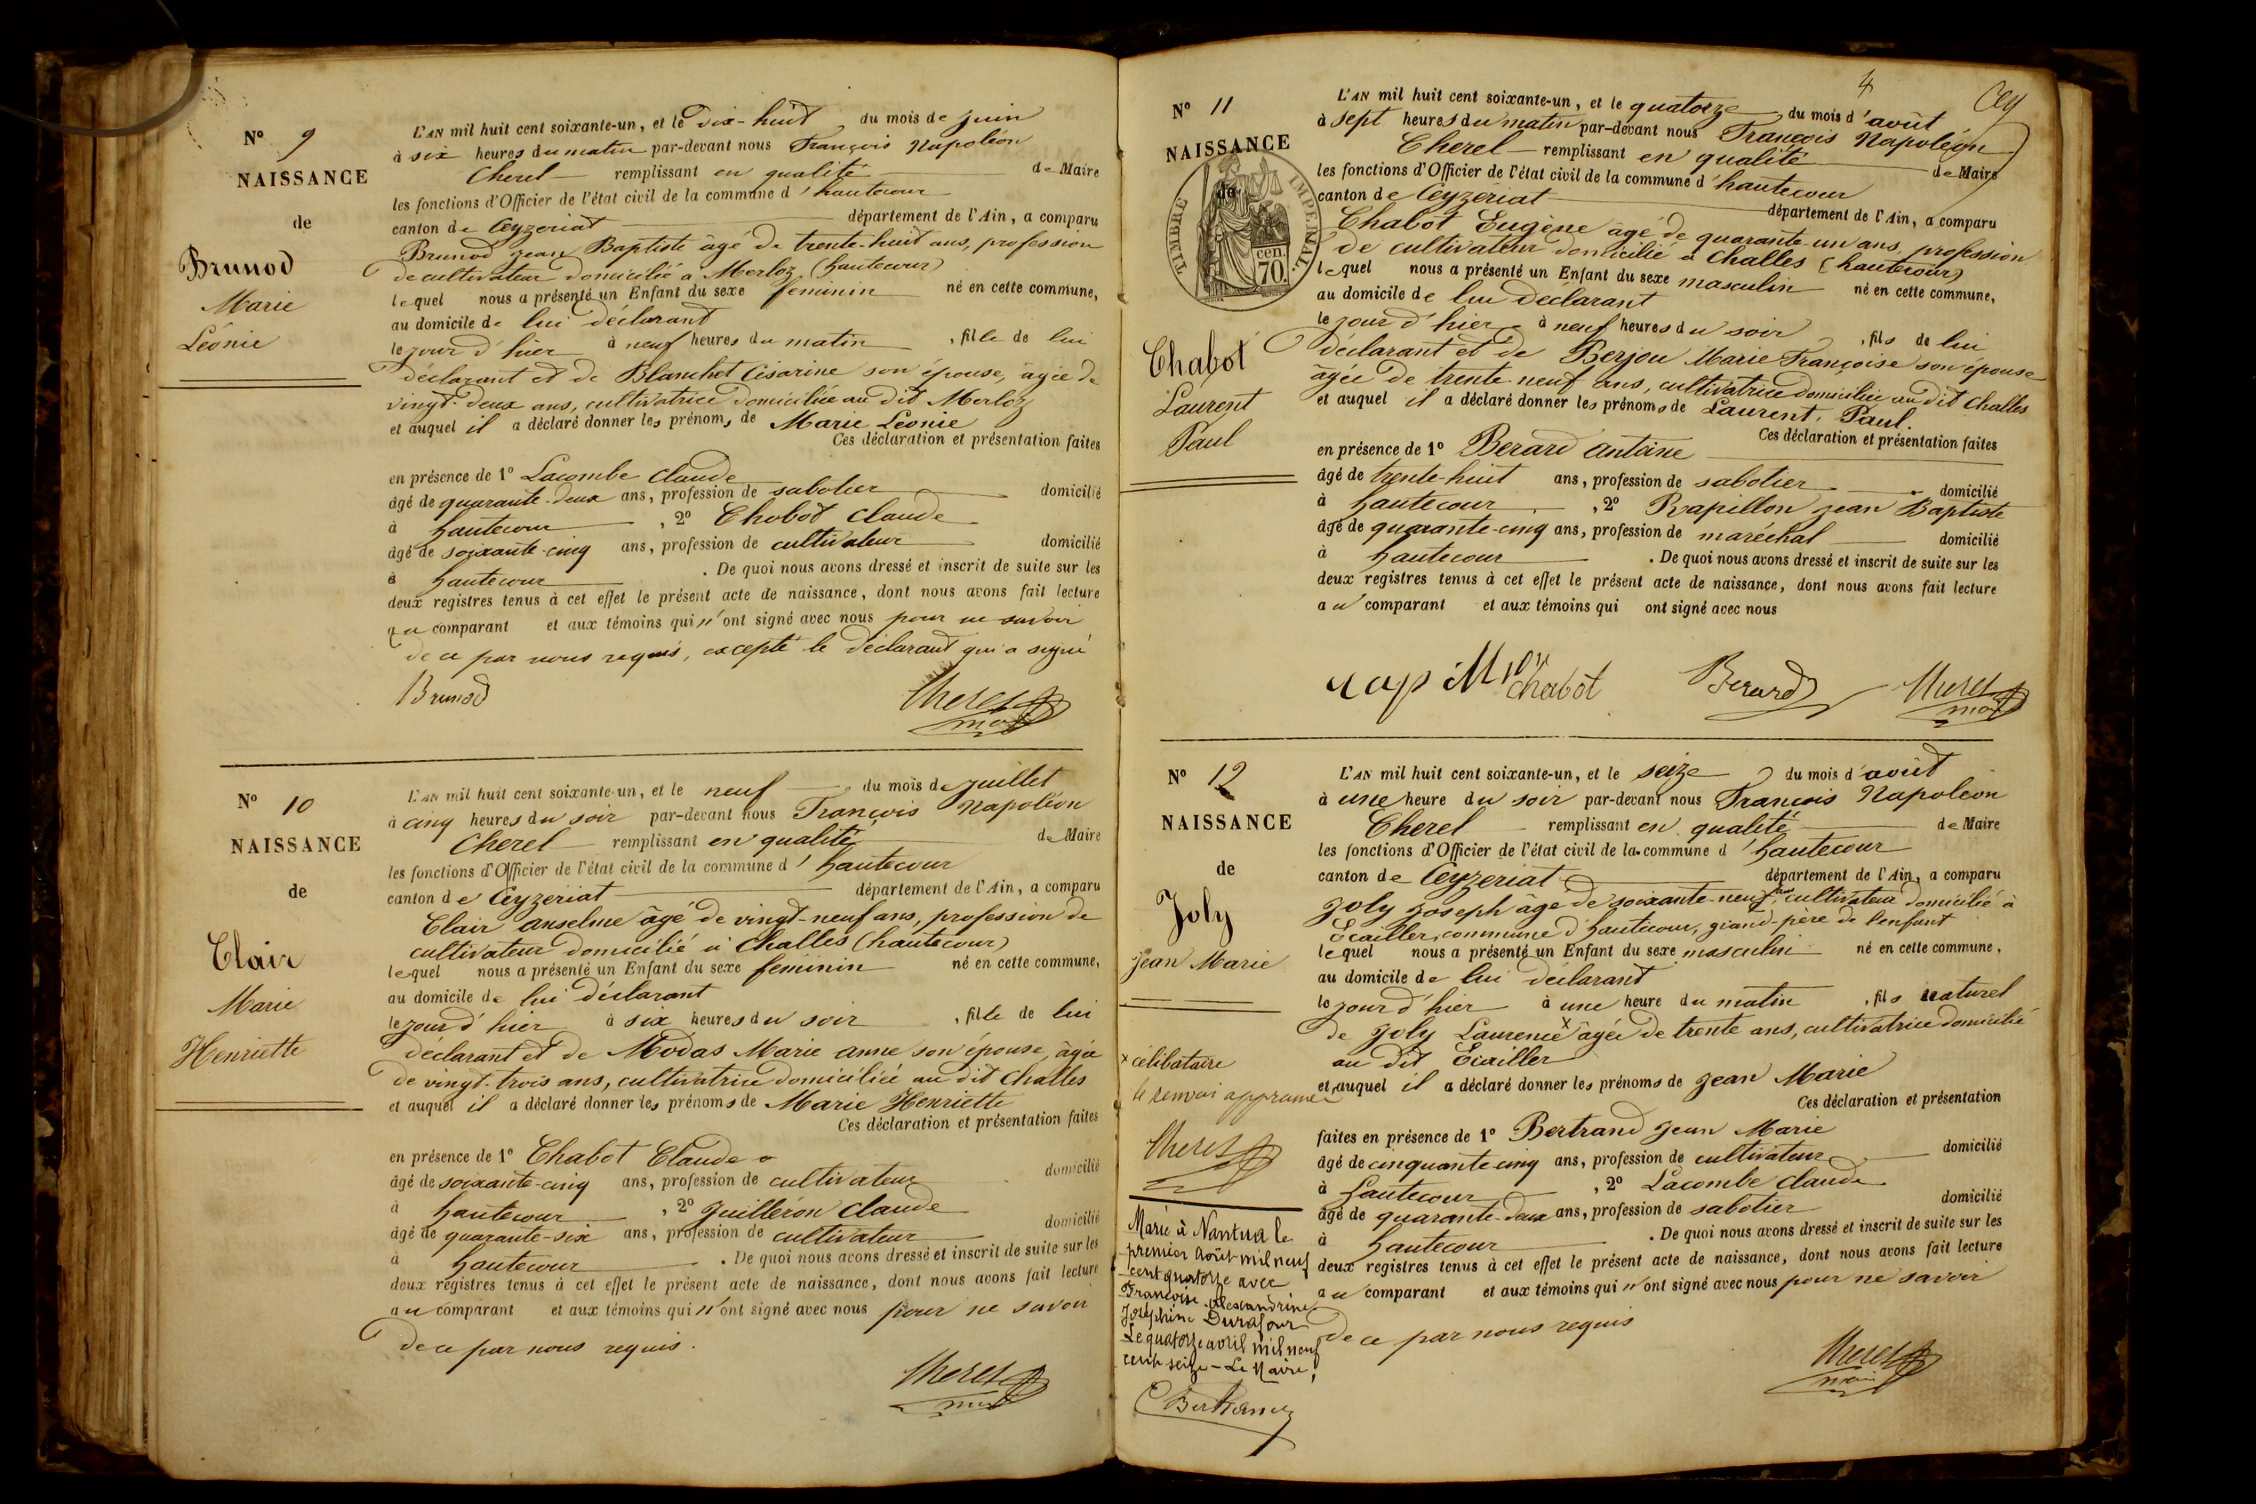 N° 9
NAISSANCE
de
Brunod
Marie
Léonie
L'AN mil huit cent soixante-un, et le dix-huit du mois de juin
à six heures du matin par-devant nous François Napoléon
Cherel remplissant en qualité de Maire
les fonctions d'Officier de l'état civil de la commune d'hautecour
canton de Ceyzeriat département de l'Ain, a comparu
Brunod jean Baptiste âgé de trente-huit ans, profession
de cultivateur domicilié à Merloz (hautecour)
lequel nous a présenté un Enfant du sexe féminin né en cette commune,
au domicile de lui déclarant
le jour d'hier à neuf heures du matin, fille de lui
déclarant et de Blanchet Césarine son épouse, âgée de
vingt-deux ans, cultivatrice domiciliée au dit Merloz
et auquel il a déclaré donner les prénoms de Marie Léonie
Ces déclaration et présentation faites
en présence de 1° Lacombe Claude
âgé de quarante-deux ans, profession de sabotier domicilié
à hautecour, 2° Chabot Claude
âgé de soixante-cinq ans, profession de cultivateur domicilié
à hautecour. De quoi nous avons dressé et inscrit de suite sur les
deux registres tenus à cet effet le présent acte de naissance, dont nous avons fait lecture
au comparant et aux témoins qui n'ont signé avec nous pour ne savoir
de ce par nous requis, excepté le déclarant qui a signé
Brunod Cherel
N° 10
NAISSANCE
de
Clair
Marie
Henriette
L'AN mil huit cent soixante-un, et le neuf du mois de juillet
à cinq heures du soir par-devant nous François Napoléon
Cherel remplissant en qualité de Maire
les fonctions d'Officier de l'état civil de la commune d'hautecour
canton de Ceyzériat département de l'Ain, a comparu
Clair anselme âgé de vingt-neuf ans, profession de
cultivateur domicilié à Challes (hautecour)
lequel nous a présenté un Enfant du sexe féminin né en cette commune,
au domicile de lui déclarant
le jour d'hier à six heures du soir, fille de lui
déclarant et de Modas Marie anne son épouse, âgée
de vingt-trois ans, cultivatrice domiciliée au dit Challes
et auquel il a déclaré donner les prénoms de Marie Henriette
Ces déclaration et présentation faites
en présence de 1° Chabot Claude
âgé de soixante-cinq ans, profession de cultivateur domicilié
à hautecour, 2° Juilléron Claude
âgé de quarante-six ans, profession de cultivateur domicilié
à hautecour. De quoi nous avons dressé et inscrit de suite sur les
deux registres tenus à cet effet le présent acte de naissance, dont nous avons fait lecture
au comparant et aux témoins qui n'ont signé avec nous pour ne savoir
de ce par nous requis.
Cherel
4
Cey
N° 11
NAISSANCE
de
TIMBRE IMPERIAL.
70 cen.
Chabot
Laurent
Paul
L'AN mil huit cent soixante-un, et le quatorze du mois d'août
à sept heures du matin par-devant nous François Napoléon
Cherel remplissant en qualité de Maire
les fonctions d'Officier de l'état civil de la commune d'hautecour
canton de Ceyzériat département de l'Ain, a comparu
Chabot Eugène âgé de quarante un ans, profession
de cultivateur domicilié à Challes (hautecour)
lequel nous a présenté un Enfant du sexe masculin né en cette commune,
au domicile de lui déclarant
le jour d'hier à neuf heures du soir, fils de lui
déclarant et de Berjou Marie Françoise son épouse
âgée de trente-neuf ans, cultivatrice domiciliée au dit Challes
et auquel il a déclaré donner les prénoms de Laurent, Paul.
Ces déclaration et présentation faites
en présence de 1° Berard antoine
âgé de trente-huit ans, profession de sabotier domicilié
à hautecour, 2° Rapillon jean Baptiste
âgé de quarante-cinq ans, profession de maréchal domicilié
à hautecour. De quoi nous avons dressé et inscrit de suite sur les
deux registres tenus à cet effet le présent acte de naissance, dont nous avons fait lecture
au comparant et aux témoins qui ont signé avec nous
Chabot Berard Cherel
N° 12
NAISSANCE
de
Joly
jean Marie
x célibataire
le renvoi approuvé
Cherel
Marié à Nantua le
premier août mil neuf
cent quatorze avec
Françoise Alexandrine
Joséphine Durafour
Le quatorze avril mil neuf
cent seize – Le Maire,
L'AN mil huit cent soixante-un, et le seize du mois d'août
à une heure du soir par-devant nous François Napoléon
Cherel remplissant en qualité de Maire
les fonctions d'Officier de l'état civil de la commune d'hautecour
canton de Ceyzeriat département de l'Ain, a comparu
joly joseph âgé de soixante-neuf ans cultivateur domicilié à
Ecailler, commune d'hautecour, grand-père de l'enfant
lequel nous a présenté un Enfant du sexe masculin né en cette commune,
au domicile de lui déclarant
le jour d'hier à une heure du matin, fils naturel
de joly Laurence x âgée de trente ans, cultivatrice domicilié
au dit Ecailler
et auquel il a déclaré donner les prénoms de jean Marie
Ces déclaration et présentation
faites en présence de 1° Bertrand jean Marie
âgé de cinquante-cinq ans, profession de cultivateur domicilié
à hautecour, 2° Lacombe Claude
âgé de quarante-deux ans, profession de sabotier domicilié
à hautecour. De quoi nous avons dressé et inscrit de suite sur les
deux registres tenus à cet effet le présent acte de naissance, dont nous avons fait lecture
au comparant et aux témoins qui n'ont signé avec nous pour ne savoir
de ce par nous requis
Cherel